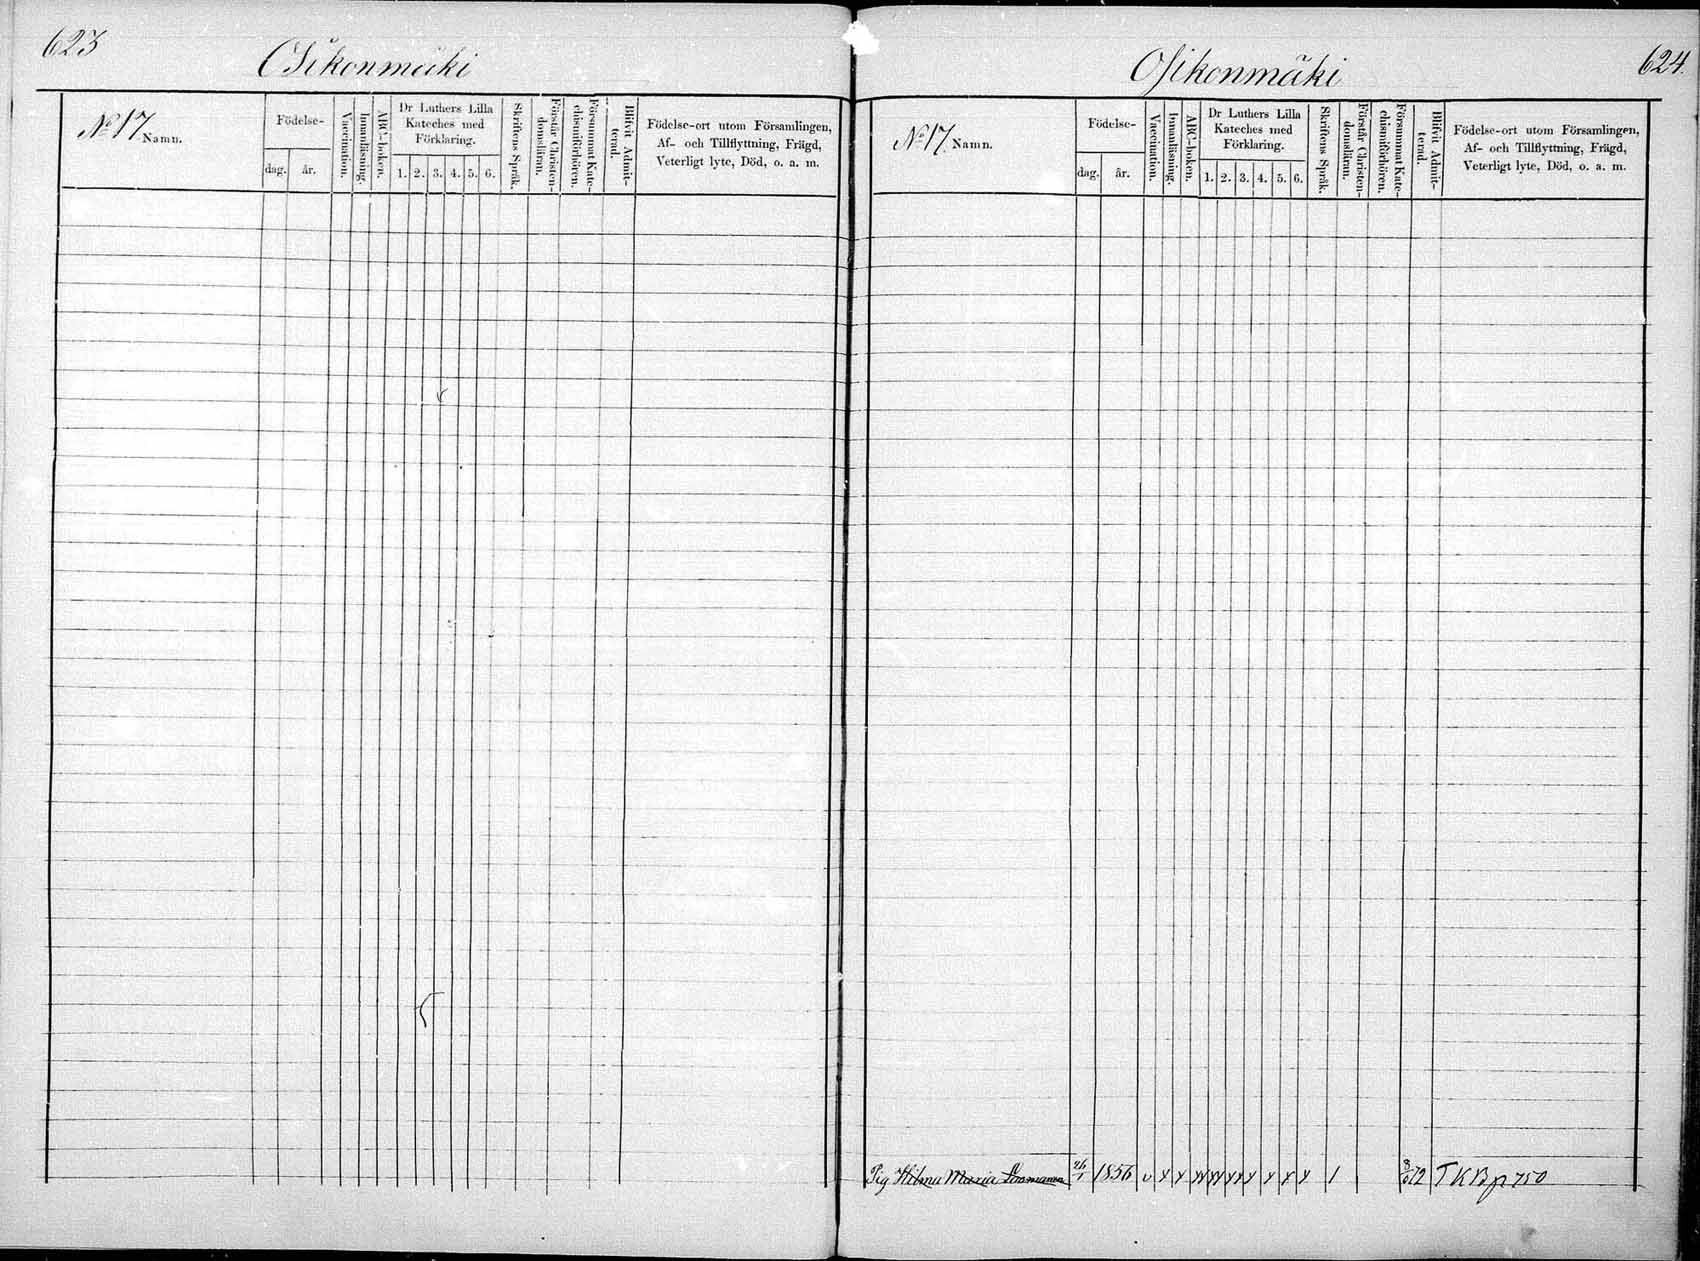 623
Osikonmäki
No 17 Namn.
Födelse-
dag. år.
Vaccination.
Innanläsning.
ABC-boken.
Dr Luthers Lilla
Kateches med
Förklaring.
1. 2. 3. 4. 5. 6.
Skriftens Språk.
Förstår Christen-
domsläran.
Försummat Kate-
chismiförhören.
Blifvit Admit-
terad.
Födelse-ort utom Församlingen,
Af- och Tillflyttning, Frägd,
Veterligt lyte, Död, o. a. m.
Osikonmäki
624.
No 17 Namn.
Födelse-
dag. år.
Vaccination.
Innanläsning.
ABC-boken.
Dr Luthers Lilla
Kateches med
Förklaring.
1. 2. 3. 4. 5. 6.
Skriftens Språk.
Förstår Christen-
domsläran.
Försummat Kate-
chismiförhören.
Blifvit Admit-
terad.
Födelse-ort utom Församlingen,
Af- och Tillflyttning, Frägd,
Veterligt lyte, Död, o. a. m.
Pig Hilma Maria 26/1 1856 v 1 72 T K B p 750